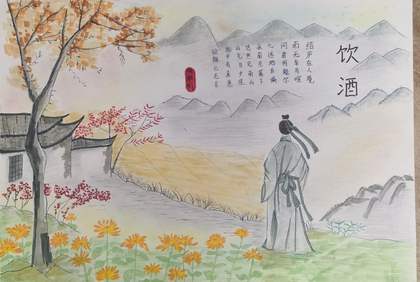 饮酒
结庐在人境
而无车马喧
问君何能尔
心远地自偏
采菊东篱下
悠然见南山
山气日夕佳
此中有真意
欲辨已忘言